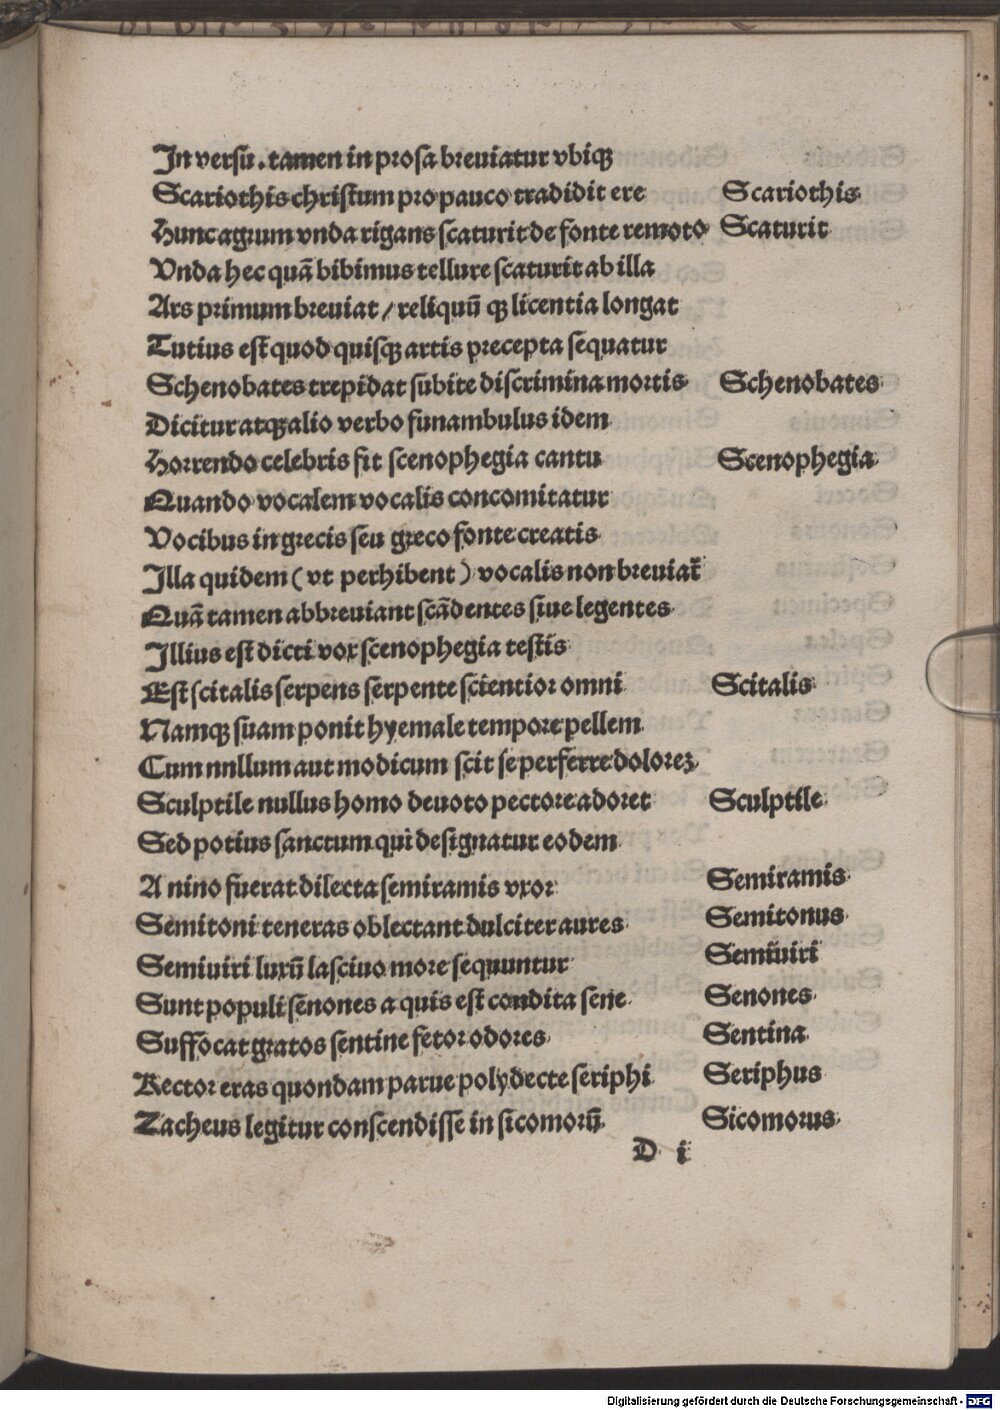 In versu. tamen in prosa breuiatur vbiqꝫ
Scariothis christum pro pauco tradidit ere Scariothis
Hunc agrum vnda rigans scaturit de fonte remoto Scaturit
Vnda hec quā bibimus tellure scaturit ab illa
Ars primum breuiat / reliquū qꝫ licentia longat
Tutius est quod quisqꝫ artis precepta sequatur
Schenobates trepidat subite discrimina mortis Schenobates
Dicitur atqꝫ alio verbo funambulus idem
Horrendo celebris fit scenophegia cantu Scenophegia
Quando vocalem vocalis concomitatur
Vocibus in grecis seu greco fonte creatis
Illa quidem (vt perhibent) vocalis non breuiat̄
Quā tamen abbreuiant scādentes siue legentes
Illius est dicti vox scenophegia testis
Est scitalis serpens serpente scientior omni Scitalis
Namqꝫ suam ponit hyemale tempore pellem
Cum nnllum aut modicum scit se perferre doloreꝫ
Sculptile nullus homo deuoto pectore adoret Sculptile
Sed potius sanctum qui designatur eodem
A nino fuerat dilecta semiramis vxor Semiramis
Semitoni teneras oblectant dulciter aures Semitonus
Semiuiri luxū lasciuo more sequuntur Semiuiri
Sunt populi senones a quis est condita sene Senones
Suffocat gratos sentine fetor odores Sentina
Rector eras quondam parue polydecte seriphi Seriphus
Zacheus legitur conscendisse in sicomorū Sicomorus
D i
Digitalisierung gefördert durch die Deutsche Forschungsgemeinschaft - DFG